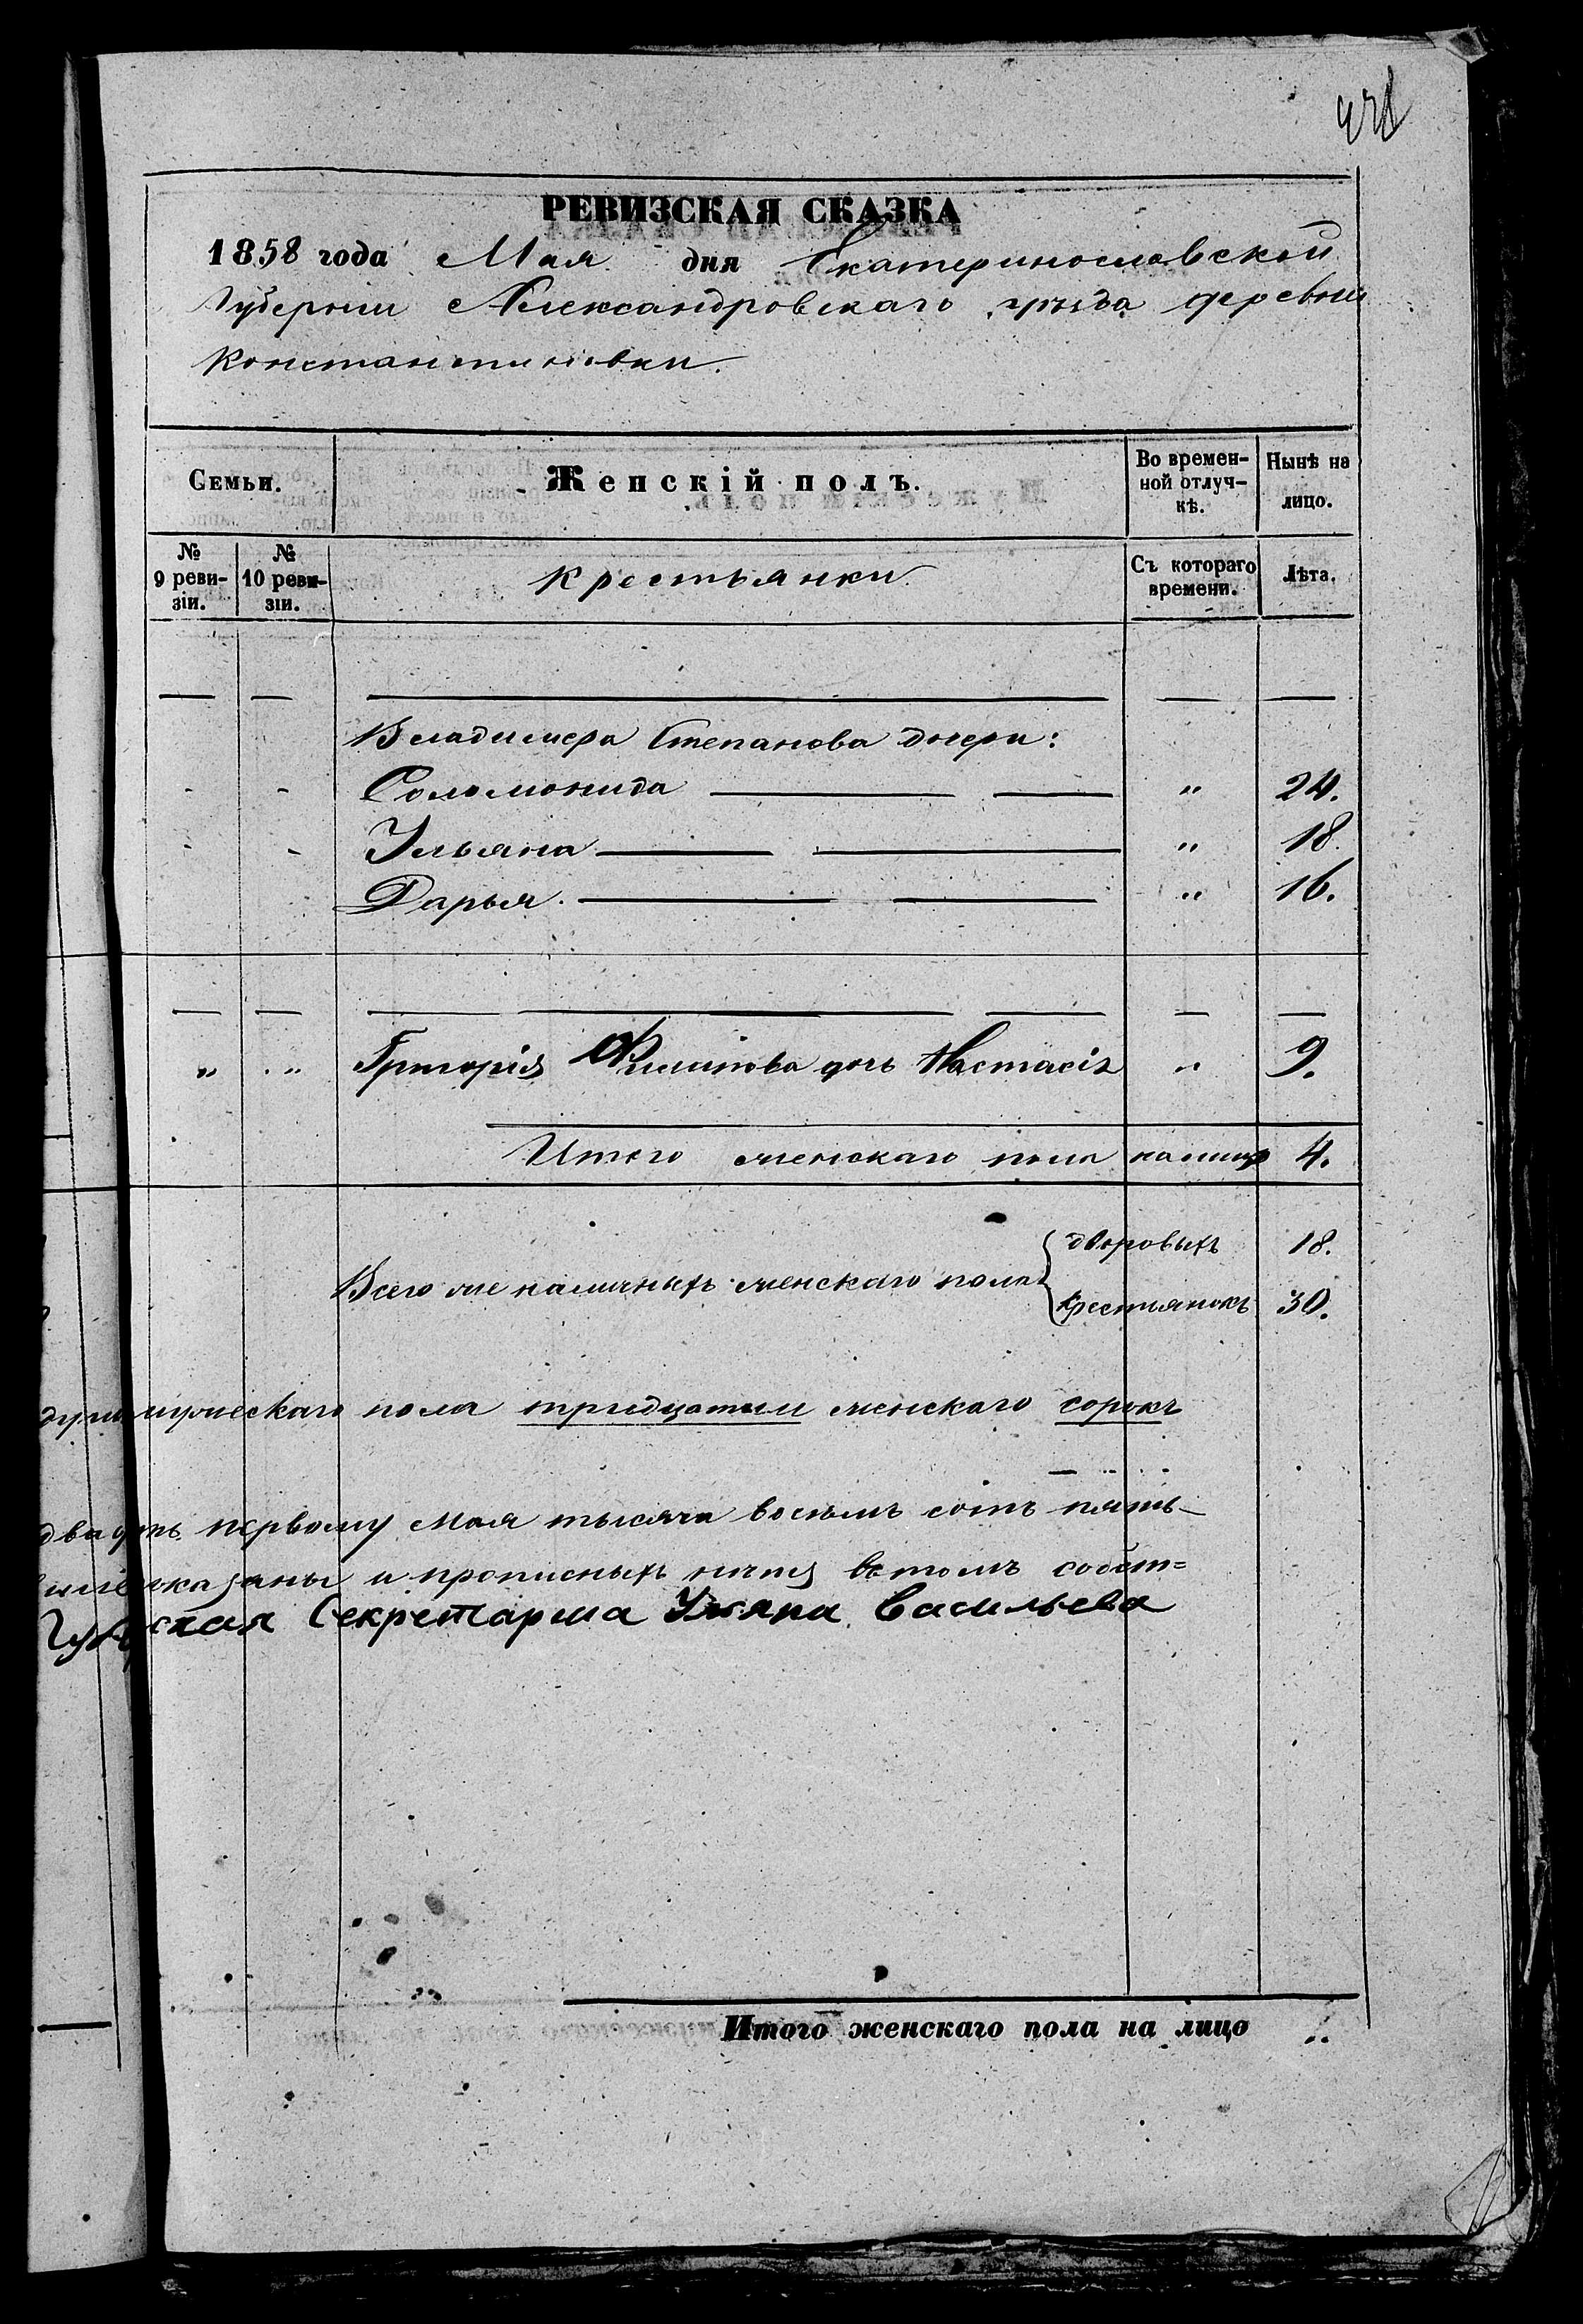 РЕВИЗСКАЯ СКАЗКА
1858 года Мая дня Екатеринославской
Губернии Александровскаго уѣзда деревни
Константиновки.
Семьи.
Женскій полъ.
Во времен-
ной отлуч-
кѣ.
Нынѣ на
лицо.
№
9 реви-
зіи.
№
10 реви-
зіи.
Крестьянки.
Съ котораго
времени.
Лѣта.
Владимера Степанова дочери:
Соломонида — — „ 24.
Ульяна — — „ 18.
Дарья. — — „ 16.
„ „ Григорія Филипова дочь Настасія „ 9.
Итого женскаго пола налицо 4.
дворовыхъ 18.
Всего же наличныхъ женскаго пола
крестьянокъ 30.
мужескаго пола тридцать женскаго сорокъ
двадцать первому мая тысяча восемь сотъ пять-
и прописныхъ нѣтъ въ томъ собст=
Секретарша Ульяна Васильева
Итого женскаго пола на лицо